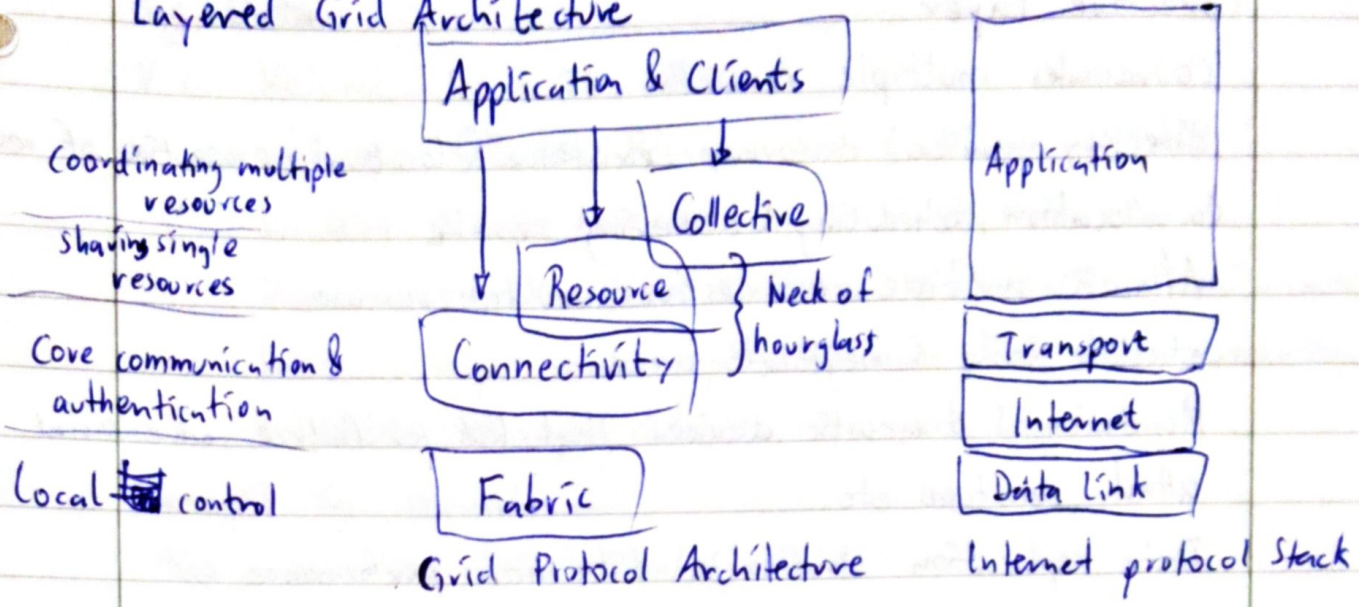 Layered Grid Architecture
Application & Clients
Coordinating multiple
resources
sharing single
resources
Core communication &
authentication
Local control
Collective
Resource
Connectivity
Fabric
Neck of
hourglass
Grid Protocol Architecture
Application
Transport
Internet
Data link
Internet protocol Stack